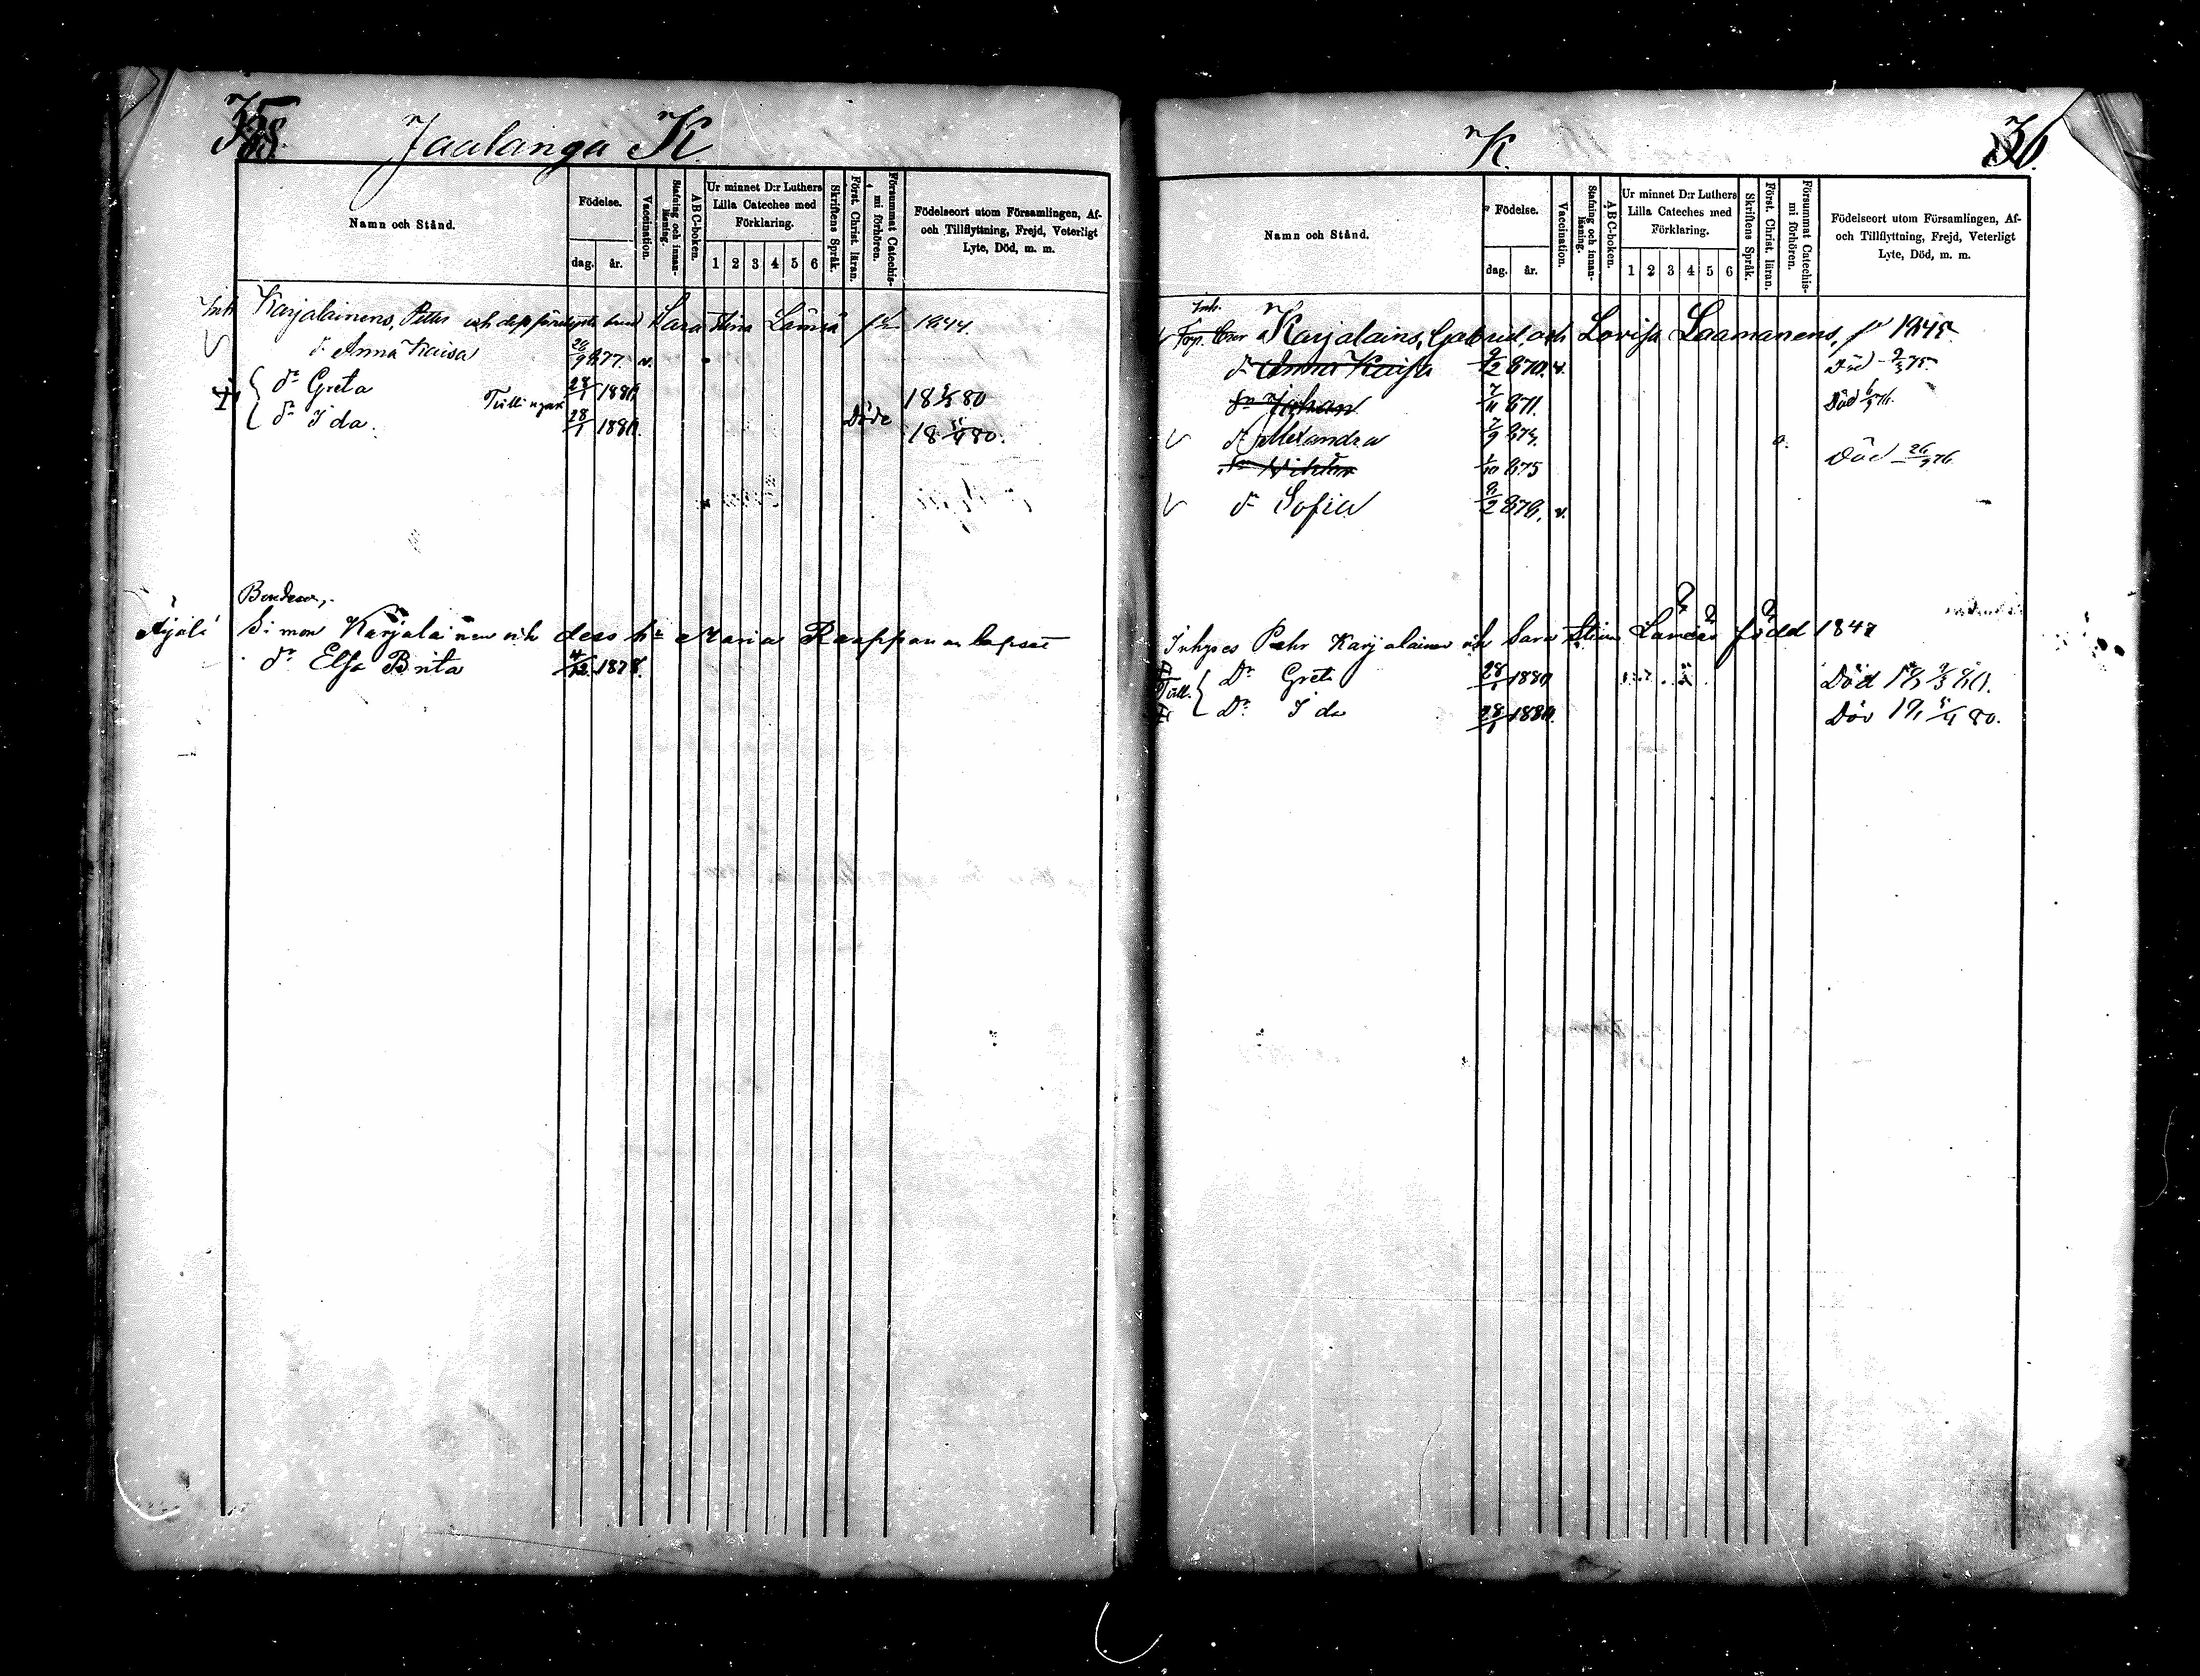 35
Jaalanga K
Namn och Stånd.
Födelse.
dag. år.
Vaccination.
Stafning och innan-läsning.
ABC-boken.
Ur minnet D:r Luthers Lilla Cateches med Förklaring.
1 2 3 4 5 6
Skriftens Språk.
Först. Christ. läran.
Försummat Catechis-mi förhören.
Födelseort utom Församlingen, Af- och Tillflyttning, Frejd, Veterligt Lyte, Död, m. m.
Inh Karjalainens, Petter och dess hust Sara Stina Lämsä 1844.
d. Anna Kaisa 877. v.
dr Greta 28/1 1880 80
Tvillingar Döde
dr Ida. 28/1 1880. 80.
Bondens,
Äijälä Simon Karjalainen och dess h:u Maria Kauppanan lapset
dr Elsa Brita 1878.
K.
36.
Namn och Stånd.
Födelse.
dag. år.
Vaccination.
Stafning och innan-läsning.
ABC-boken.
Ur minnet D:r Luthers Lilla Cateches med Förklaring.
1 2 3 4 5 6
Skriftens Språk.
Först. Christ. läran.
Försummat Catechis-mi förhören.
Födelseort utom Församlingen, Af- och Tillflyttning, Frejd, Veterligt Lyte, Död, m. m.
Inh.
Karjalains, Gabriel, och Lovisa Laamanens, 1845.
d. Anna Kaisa 870. v. Död 75
Johan 871. Död 76.
d. Alexandra 874. a.
Viktor 875 Död 26 76
dr Sofia 876. v.
Inhyses Pehr Karjalainen och Sara Stina född 184
Tvill. Dr Greta 28/1 1880 Död 80.
Dr Ida 28/1 1880. Död 80.